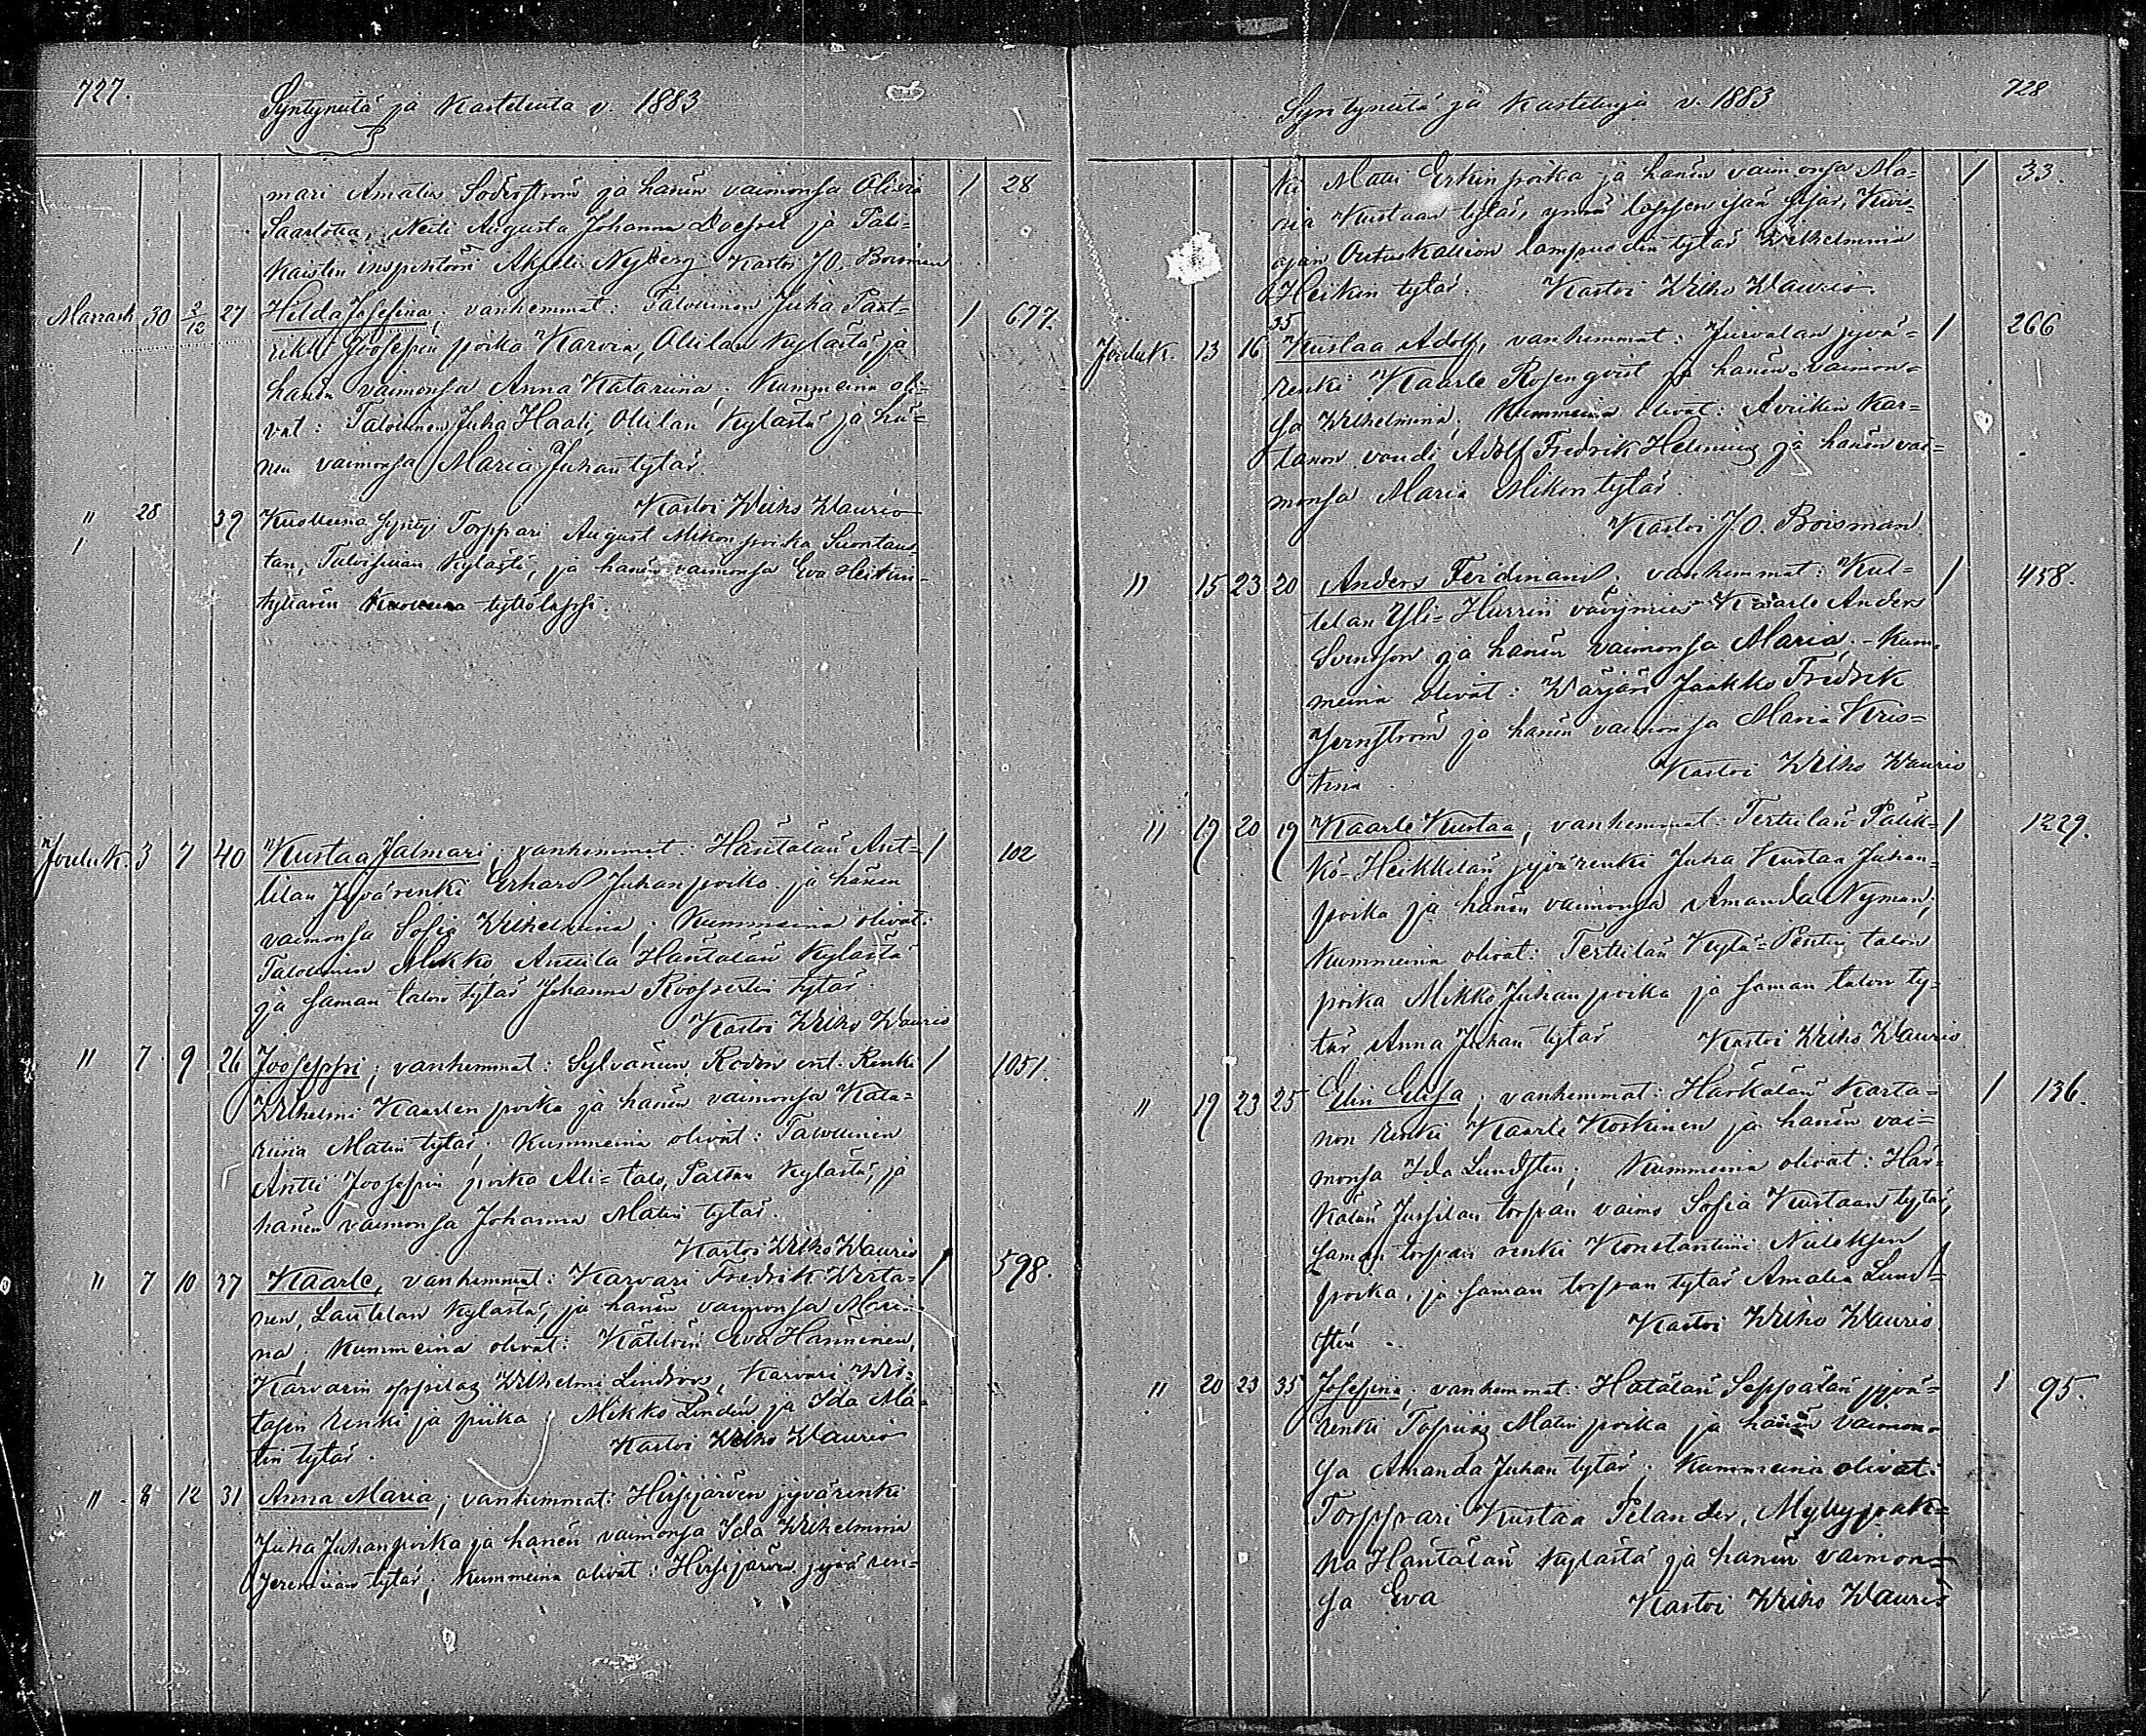 727.
Syntyneitä ja Kasteluita v. 1883
mari Amatus Söderström ja hänen vaimonsa Olivia 1 28
Saarlotta, Neiti Augusta Johanna Daepsel ja
kaisten inspehtori Akseli Nyberg. Kastoi J.O. Boisman
Marrask. 30 2/12 27 Hilda Josefina; vanhemmat: Talollinen Juha Pant- 1 677.
rikki Joosepin poika Karvia, Ollilan Kylästä, ja
hänen vaimonsa Anna Katariina; Kummeina oli-
vat: Talollinen Juha Haati, Ollilan Kylästä ja hä-
nen vaimonsa Maria Juhantytär.
Kastoi Wilho Waurio
" 28 39 Kuolleena syntyi Torppari August Mikon poika Suontaus-
tan, Talpian Kylästä, ja hänen vaimonsa Eva Heikin-
tyttären tyttölapsi.
Jouluk. 3 7 40 Kustaa Jalmari; vanhemmat: Häntälän Ant- 1 102
tilan Jyvärenki Erhard Juhanpoika ja hänen
vaimonsa Sofia Wilhelmina; Kummeina olivat:
Talollinen Mikko Anttila Häntälän Kylästä
ja saman talon tytär Johanna Roopertin tytär.
Kastoi Wilho Waurio
" 7 9 26 Jooseppi; vanhemmat: Sylvänän Rodon ent. Renki 1 1051.
Wilhelmi Kaarlen poika ja hänen vaimonsa Kata-
riina Matin tytär; Kummeina olivat: Talollinen
Antti Joosepin poika Ali-talo, Pattan Kylästä, ja
hänen vaimonsa Johanna Matin tytär.
Kastoi Wilho Waurio
" 7 10 37 Kaarle, vanhemmat: Karvari Fredrik Wirta- 1 598.
nen, Lautelan Kylästä, ja hänen vaimonsa Mari-
na; Kummeina olivat: Kätilön Eva Hanninen,
Karvarin oppilas Wilhelmi Lindroos, Karvari Wir-
tasen renki ja piika Mikko Linden ja Ida Ma-
tin tytär. Kastoi Wilho Waurio
" 8 12 31 Anna Maria; vanhemmat: Hirsjärven jyvärenki
Juha Juhanpoika ja hänen vaimonsa Ida Wilhelmina
Jeremiian tytär; Kummeina olivat: Hirsjärven jyvä ren-
728
Syntyneitä ja Kastetuja v. 1883
ki Matti Erkin poika ja hänen vaimonsa Ma- 1 33.
ria Kustaan tytär, ynnä lapsen isän sisar,
ajan Outuskallion lampuodin tytär Wilhelmina
Heikin tytär. Kastoi Wilho Waurio.
Jouluk. 13 16 35 Kustaa Adolf, vanhemmat: Jurvalan jyvä- 1 266
renki Kaarle Rosenqvist ja hänen vaimon-
sa Wilhelmina; Kummeina olivat: Avikin Kar-
tanon vouti Adolf Fredrik Helenius ja hänen vai-
monsa Maria Mikon tytär.
Kastoi J.O. Boisman
" 15 23 20 Anders Ferdinand; vanhemmat: Kul- 1 458.
telan Yli-Hurrin vävymies Kaarle Anders
Svensson ja hänen vaimonsa Maria; - Kum-
meina olivat: Wärjäri Jaakko Fredrik
Jernström ja hänen vaimonsa Maria Kris-
tina. Kastoi Wilho Waurio
" 19 20 19 Kaarle Kustaa; vanhemmat: Terttilän Pätik- 1 1229.
kö-Heikkilän jyvärenki Juha Kustaa Juhan-
poika ja hänen vaimonsa Amanda Nyman;
Kummeina olivat: Terttilän Kylä-Pentin talon
poika Mikko Juhanpoika ja saman talon ty-
tär Anna Juhan tytär Kastoi Wilho Waurio
" 19 23 25 Elin Elisa; vanhemmat: Härkälän Karta- 1 136.
non renki Kaarle Koskinen ja hänen vai-
monsa Ida Lundsten; Kummeina olivat: Här-
kälän Jussilan torpan vaimo Sofia Kustaan tytär,
saman torpan renki Konstantiini Niileksen
poika, ja saman torpan tytär Amalia Lund-
sten. Kastoi Wilho Waurio
" 20 23 35 Josefina; vanhemmat: Hätälän Seppälän jyvä- 1 95.
renki Topias Matin poika ja hänen vaimon-
sa Amanda Juhan tytär; Kummeina olivat:
Torppari Kustaa Pelander, Myllypak-
ka Häntälän Kylästä ja hänen vaimon-
sa Eva Kastoi Wilho Waurio